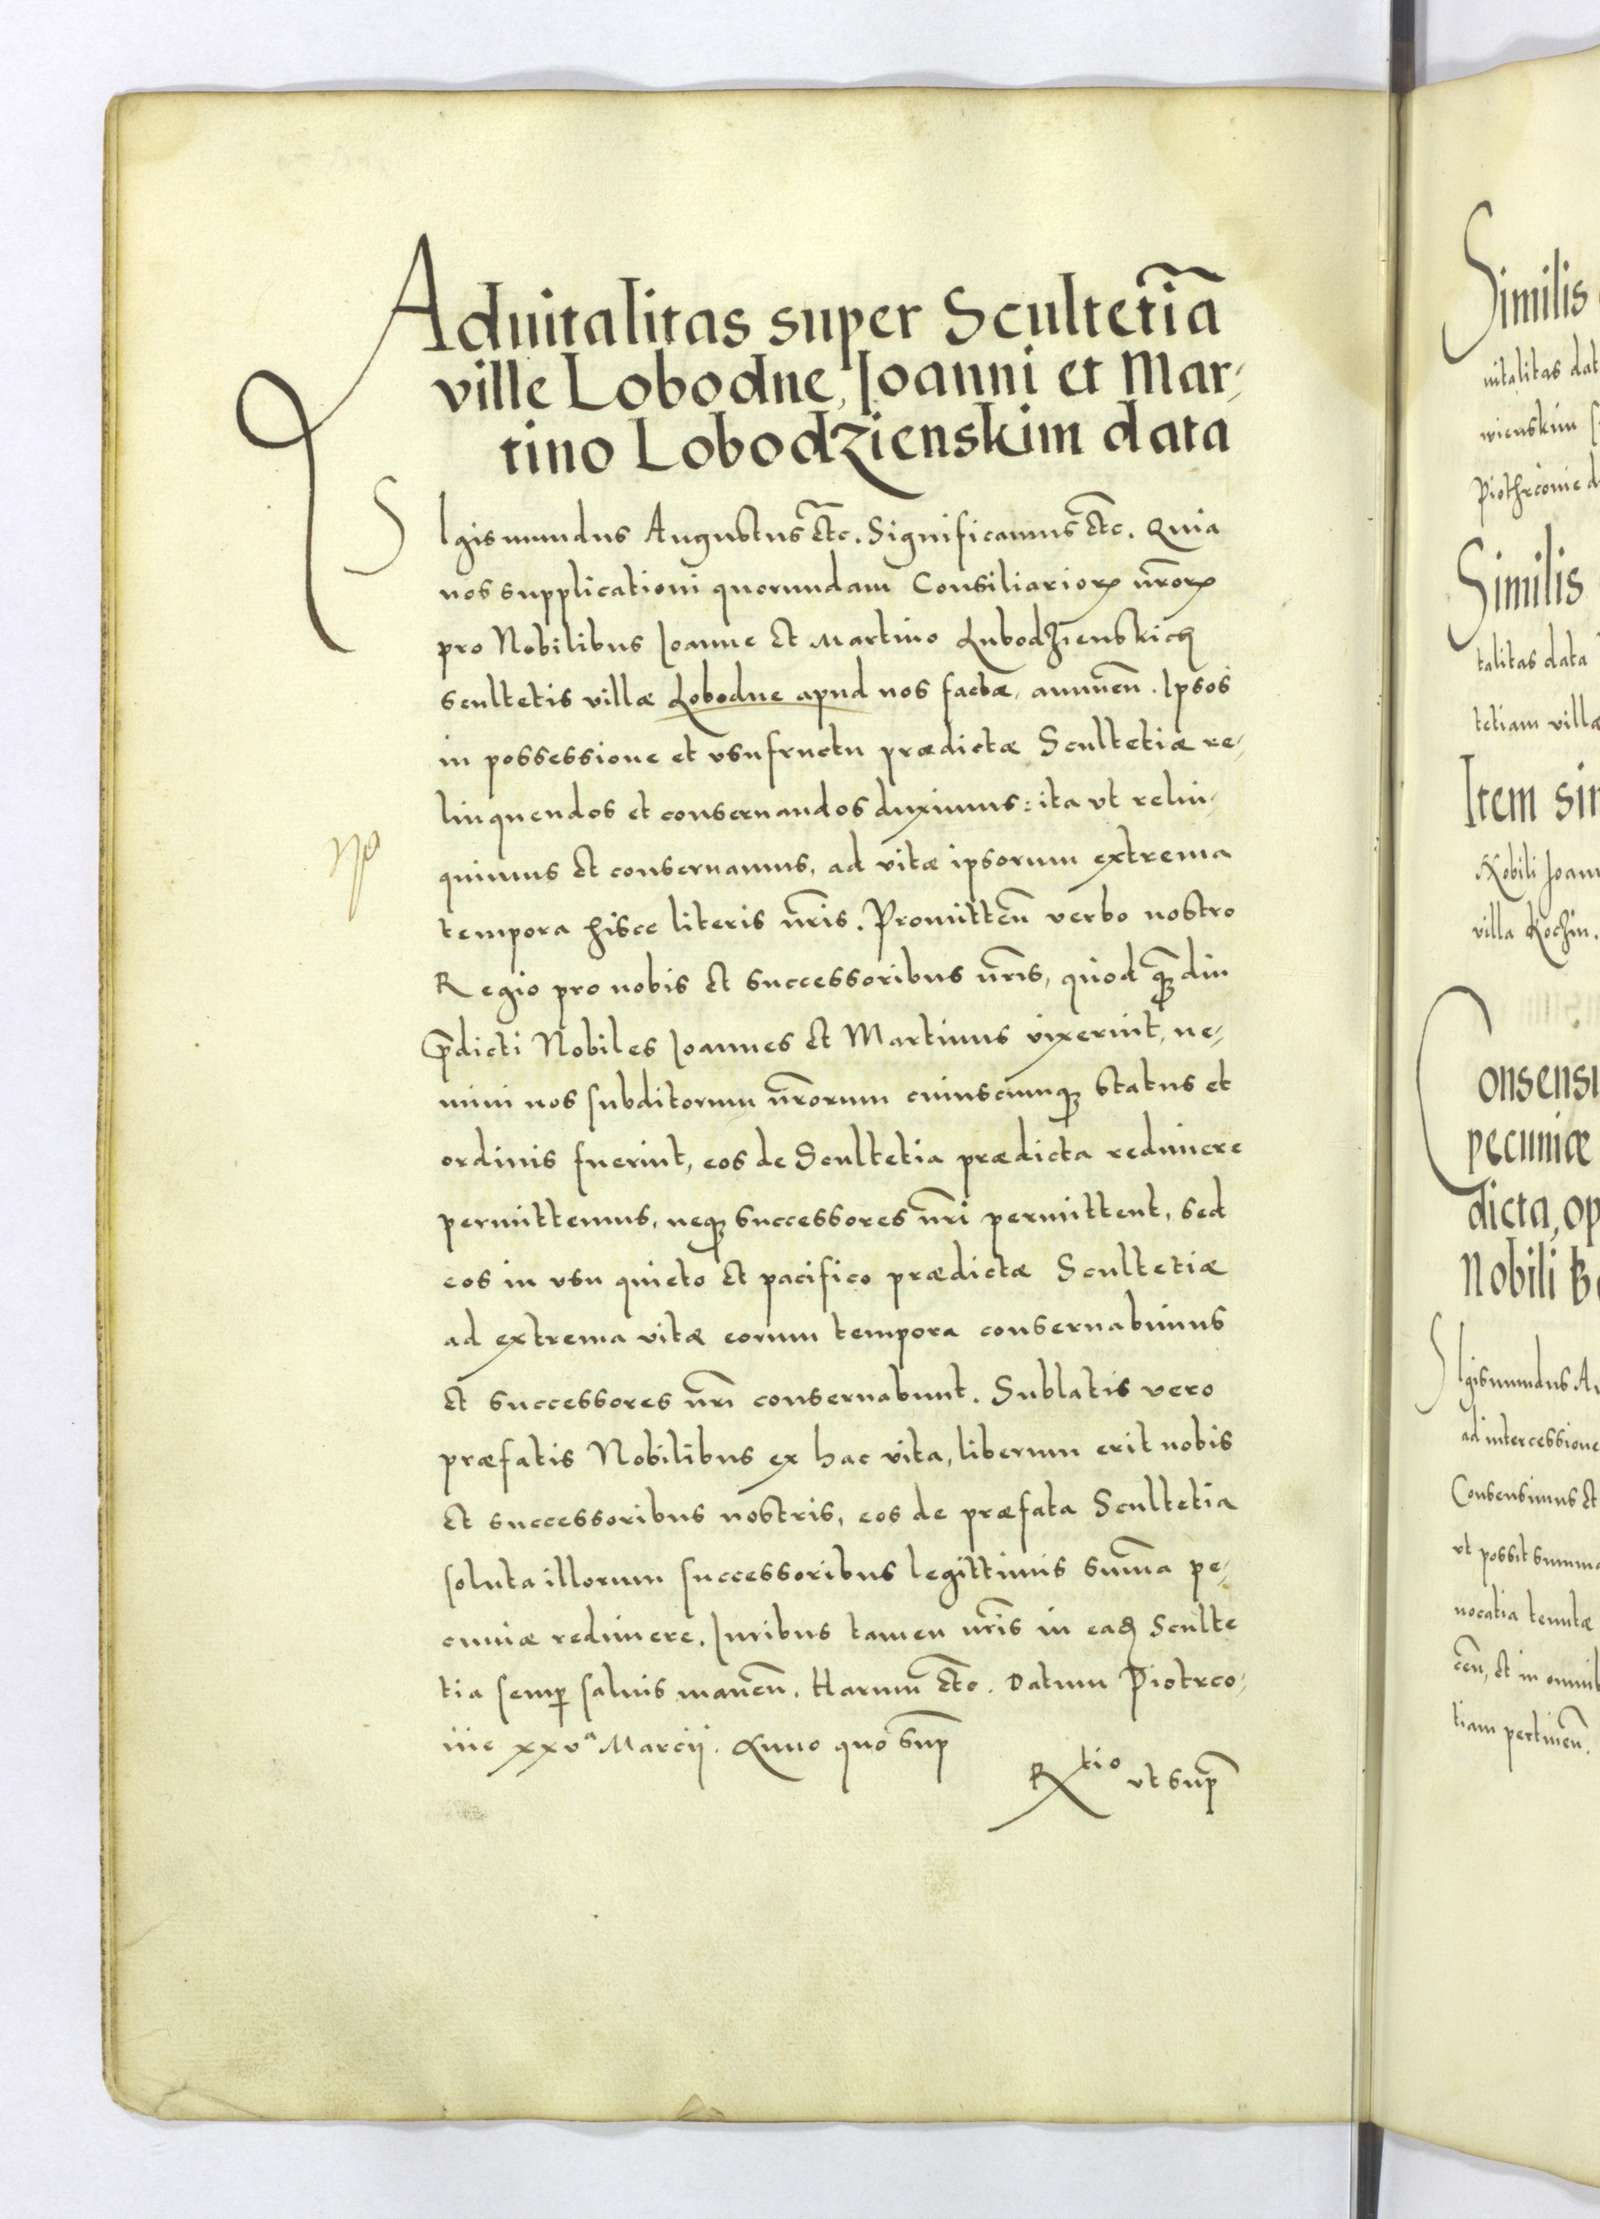 Aduitalitas super Scultetiā
ville Lobodne, Ioanni et Mar-
tino Lobodzienskim data
SIgismundus Augustus etc. Significamus etc. Quia
nos supplicationi quorundam Consiliarioꝝ nr̄oꝝ
pro Nobilibus Ioanne et Martino Lubodzienskich
scultetis villæ Lobodne apud nos factæ, annuen̄. Ipsos
in possessione et vsufructu prædictæ Scultetiæ re-
linquendos et conseruandos duximus: ita vt relin-
quimus et conseruamus, ad vitæ ipsorum extrema
tempora hisce literis nr̄is. Promitten̄ verbo nostro
Regio pro nobis et successoribus nr̄is, quod qꝫ̄ diu
p̄dicti Nobiles Ioannes et Martinus vixerint, ne-
mini nos subditorum nr̄orum cuiuscumqꝫ status et
ordinis fuerint, eos de Scultetia prædicta redimere
permittemus, neqꝫ successores nr̄i permittent, sed
eos in vsu quieto et pacifico prædictæ Scultetiæ
ad extrema vitæ eorum tempora conseruabimus
et successores nr̄i conseruabunt. Sublatis vero
præfatis Nobilibus ex hac vita, liberum erit nobis
et successoribus nostris, eos de præfata Scultetia
soluta illorum successoribus legittimis sum̄a pe-
cuniæ redimere. Iuribus tamen nr̄is in eadꝫ Sculte
tia semꝑ saluis manen̄. Harum etc. Datum Piotrco-
uie xxvᵃ Marcij. Anno quo sup̄
Rtio vt sup̄
Similis
uitalitas dat
wienskim
Piothrcouie d
Similis
talitas data
tetiam villæ
Item sim
Nobili Ioan
villa Kochin.
Consensu
pecuniæ
dicta, op
Nobili Be
SIgismundus Au
ad intercessione
Consensimus et
vt possit summa
uocatia tenutæ
cen̄, et in omnib
tiam pertinen̄.